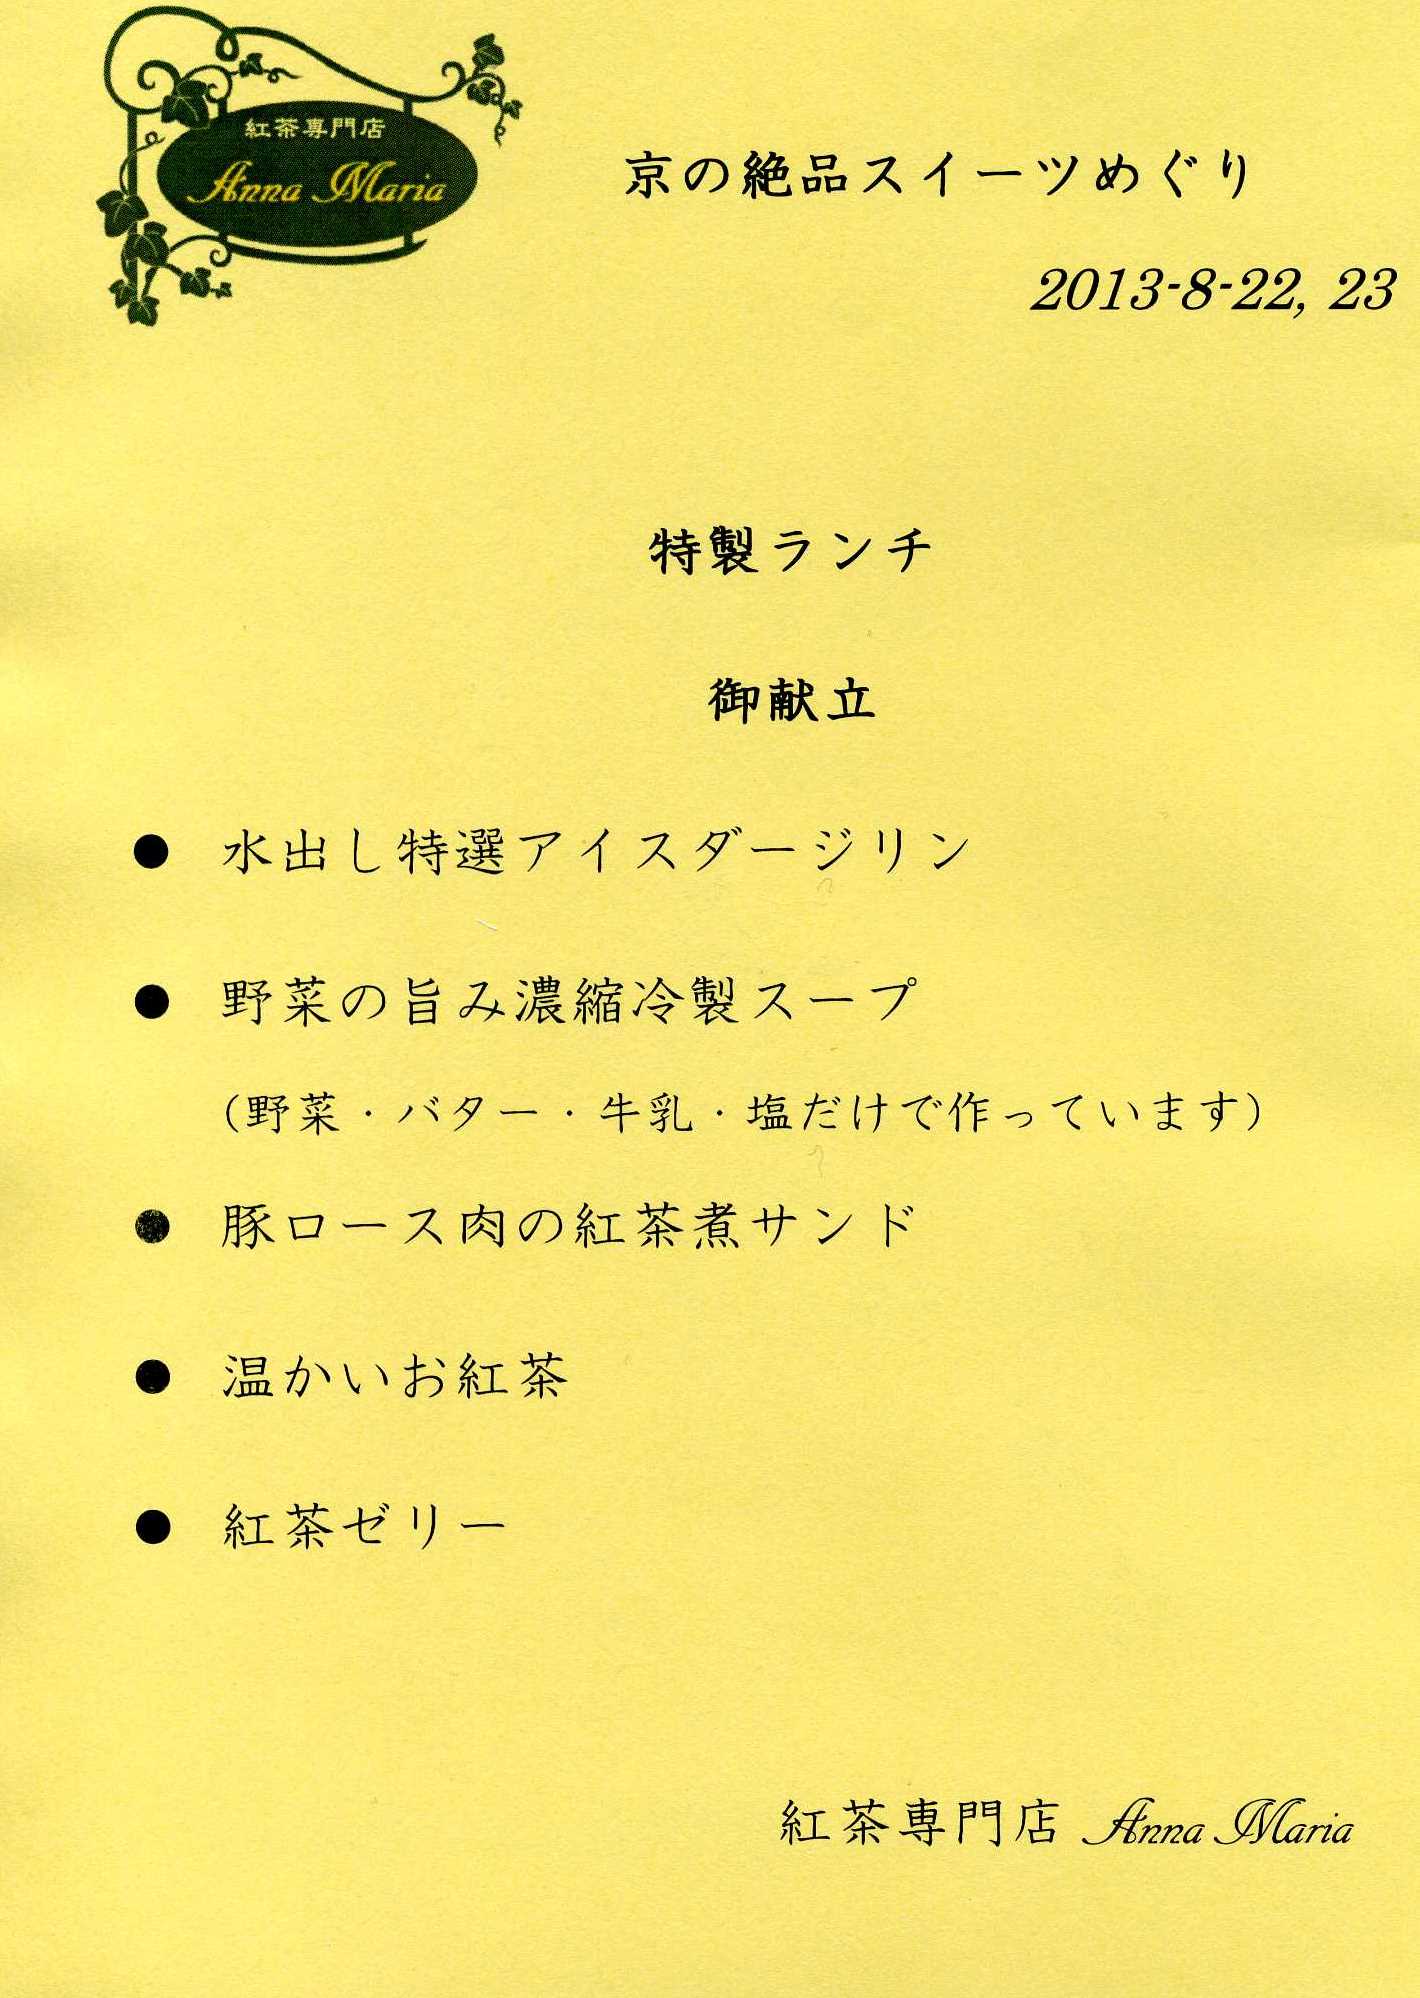 紅茶専門店
Anna Maria
京の絶品スイーツめぐり
2013-8-22, 23
特製ランチ
御献立
● 水出し特選アイスダージリン
● 野菜の旨み濃縮冷製スープ
（野菜・バター・牛乳・塩だけで作っています）
● 豚ロース肉の紅茶煮サンド
● 温かいお紅茶
● 紅茶ゼリー
紅茶専門店 Anna Maria